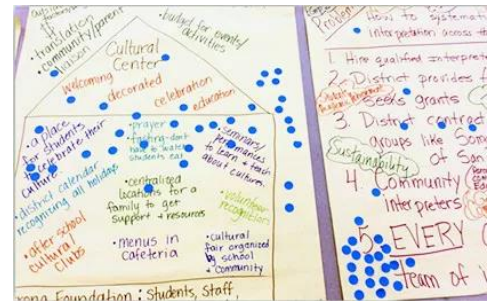 translation
community/parent
liaison
budget for events/
activities
Cultural
Center
welcoming
decorated
celebration
education
• a place
for students
to celebrate their
culture
• prayer
• fasting - don't
have to watch
students eat
• seminars/
performances
to learn & teach
about cultures.
• district calendar
recognizing all holidays
• centralized
locations for a
family to get
support & resources
• volunteer
recognition
• after school
cultural
clubs
• menus in
cafeteria
• cultural
fair organized
by school
& community
Foundation: Students, Staff,
Problem
How to
interpretation across
1. Hire qualified
2. District provides
seeks grants
3. District contract
groups like
of San
Sustainability
4. Community
interpreters
5. EVERY
team of